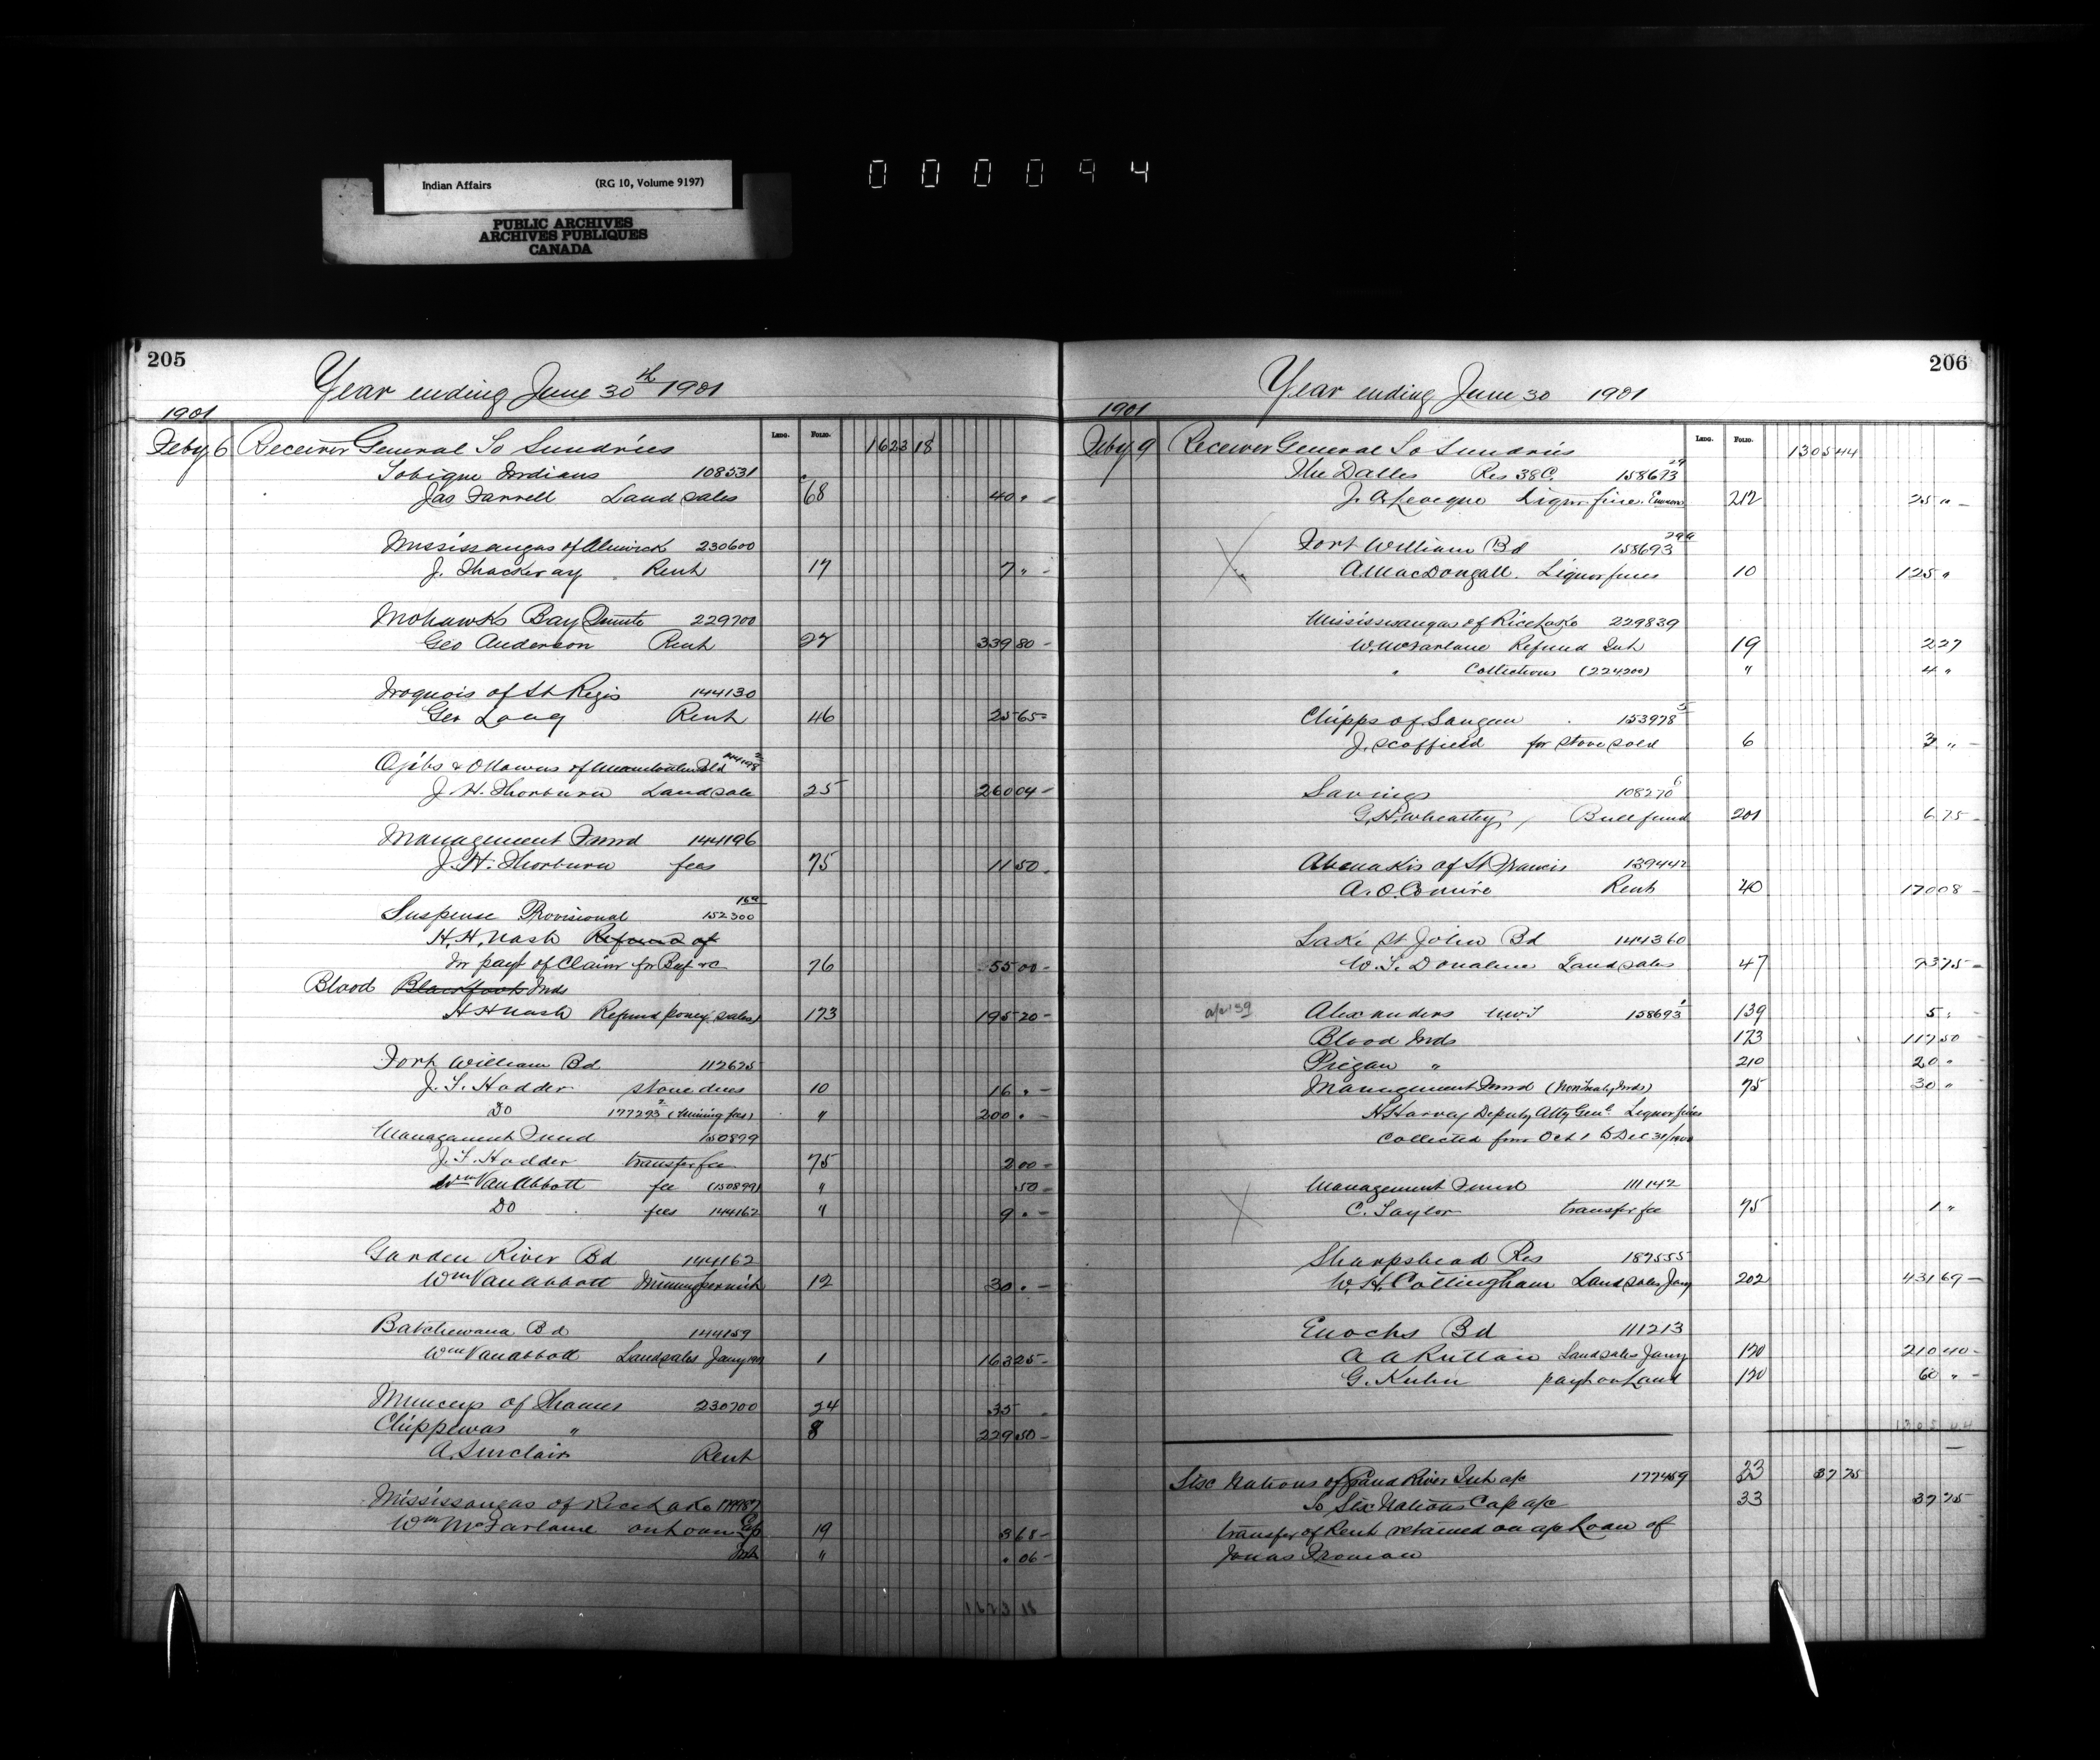 Indian Affairs (RG 10, Volume 9197)
PUBLIC ARCHIVES
ARCHIVES PUBLIQUES
CANADA
000094
205
Year ending June 30th 1901
1901
Ldg. Folio.
Feby 6 Receiver General To Sundries 1623 18
Tobique Indians 108531
Jas Farrell Land sales 68 40 " -
Mississaugas of Alnwick 230600
J. Thackeray Rent 17 7 " -
Mohawks Bay Quinte 229700
Geo Anderson Rent 27 339 80 -
Iroquois of St Regis 144130
Geo Long Rent 46 25 65 -
Ojibs & Ottawas of Manitoulin Isld 144198
J. H. Thorburn Land sale 25 260 04 -
Management Fund 144196
J. H. Thorburn fees 75 11 50
Suspense Provisional 152300 16a
H. H. Nash Refund of
for payt of Claim for Beef &c 76 55 00 -
Blood Blackfoot Inds
H H Nash Refund poney sales 173 195 20 -
Fort William Bd 112675
J. T. Hodder stone dues 10 16 " -
Do 177293 2 (Mining fees) " 200 " -
Management Fund 150899
J. T. Hodder transfer fee 75 2 00 -
Wm Van Abbott fee (150899) " 50 -
Do fees 144162 " 9 " -
Garden River Bd 144162
Wm Van Abbott Mining permit 12 30 " -
Batchewana Bd 144159
Wm Van Abbott Land sales Jany 1901 1 163 25 -
Munceys of Thames 230700 24 35
Chippewas " 8 229 50 -
A. Sinclair Rent
Mississaugas of Rice Lake
Wm McFarlane on loan Cap 19 3 68 -
Int " . 06 -
1623 18
206
Year ending June 30 1901
1901
Ldg. Folio.
Feby 9 Receiver General To Sundries 1305 44
The Dalles Res 38C 158693 29
J. A. Leveque Liquor fine 212 25 " -
Fort William Bd 158693 29a
A. MacDougall. Liquor fines 10 125 "
Mississaugas of Rice Lake 229839
W. McFarlane Refund Int 19 2 27
" Collections (224200) " 4 "
Chipps of Saugeen 153978 5
J. Scoffield for stove sold 6 3 " -
Savings 108270 6
G. H. Wheatley, Bull fund 201 6 75 -
Abenakis of St Francis 139442
A. O. Comire Rent 40 170 08 -
Lake St John Bd 144360
W. T. Donahue Land sales 47 73 75 -
a/c 139 Alexanders N.W.T 158693 1 139 5 " -
Blood Inds 173 117 50 -
Piegan " 210 20 "
Management Fund (Non Treaty Inds) 75 30 "
H Harvey Deputy Atty Genl Liquor fines
Collected from Oct 1 to Dec 31/1900
Management Fund 111142
C. Taylor transfer fee 75 1 "
Sharpshead Res 187555
W. H. Cottingham Land sales Jany 202 431 69 -
Enochs Bd 111213
A A Ruttan Land sales Jany 120 210 40 -
G. Kuhn payt on Land 120 60 " -
1305 44
Six Nations of Grand River Int a/c 177459 33 37 75
To Six Nations Cap a/c 33 37 75
transfer of Rent retained on a/c Loan of
Jonas Froman